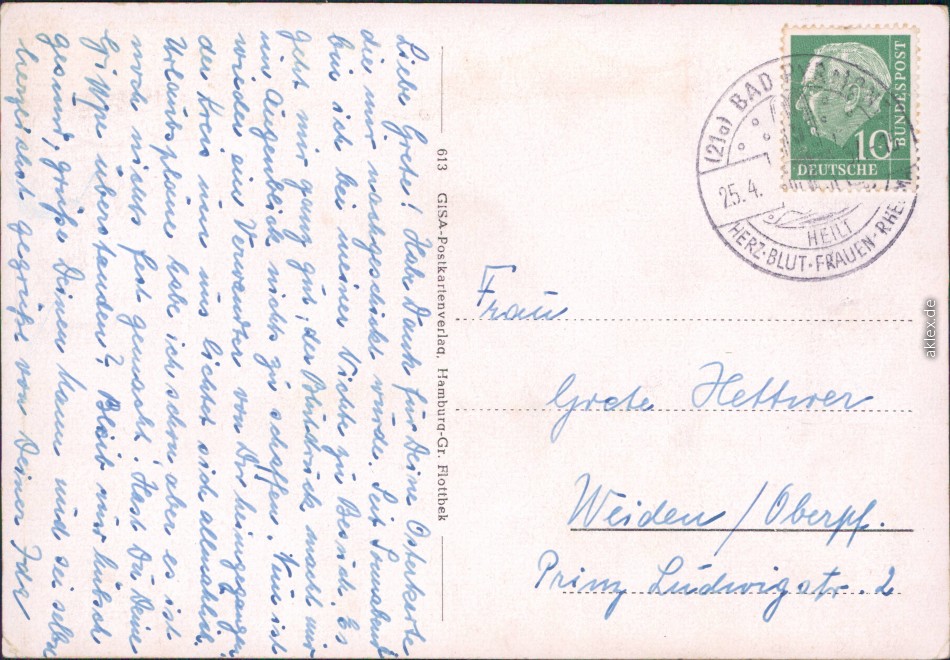 Liebe Grete! Habe Dank für Deine Osterkarte
die mir nachgeschickt wurde. Seit Sonnabend
bin ich bei meiner Nichte zu Besuch. Es
geht mir ganz gut, der Blutdruck macht mir
im Augenblick nichts zu schaffen. Nun ist
wieder eine Verwandte von Dir heimgegangen
der Kreis um uns lichtet sich allmählich.
Urlaubspläne habe ich schon aber es ist
noch nichts fest gemacht. Hast Du Deine
Grippe überstanden? Bleib nur hübsch
gesund, grüße Deinen Mann und sei selber
herzlichst gegrüßt von Deiner Ida
613 GiSA-Postkartenverlag, Hamburg-Gr. Flottbek
(21a) BAD
25.4.
HEILT
HERZ·BLUT·FRAUEN·RHE
10
BUNDESPOST
DEUTSCHE
Frau
Grete Hettwer
Weiden / Oberpf.
Prinz Ludwigstr. 2
aklex.de